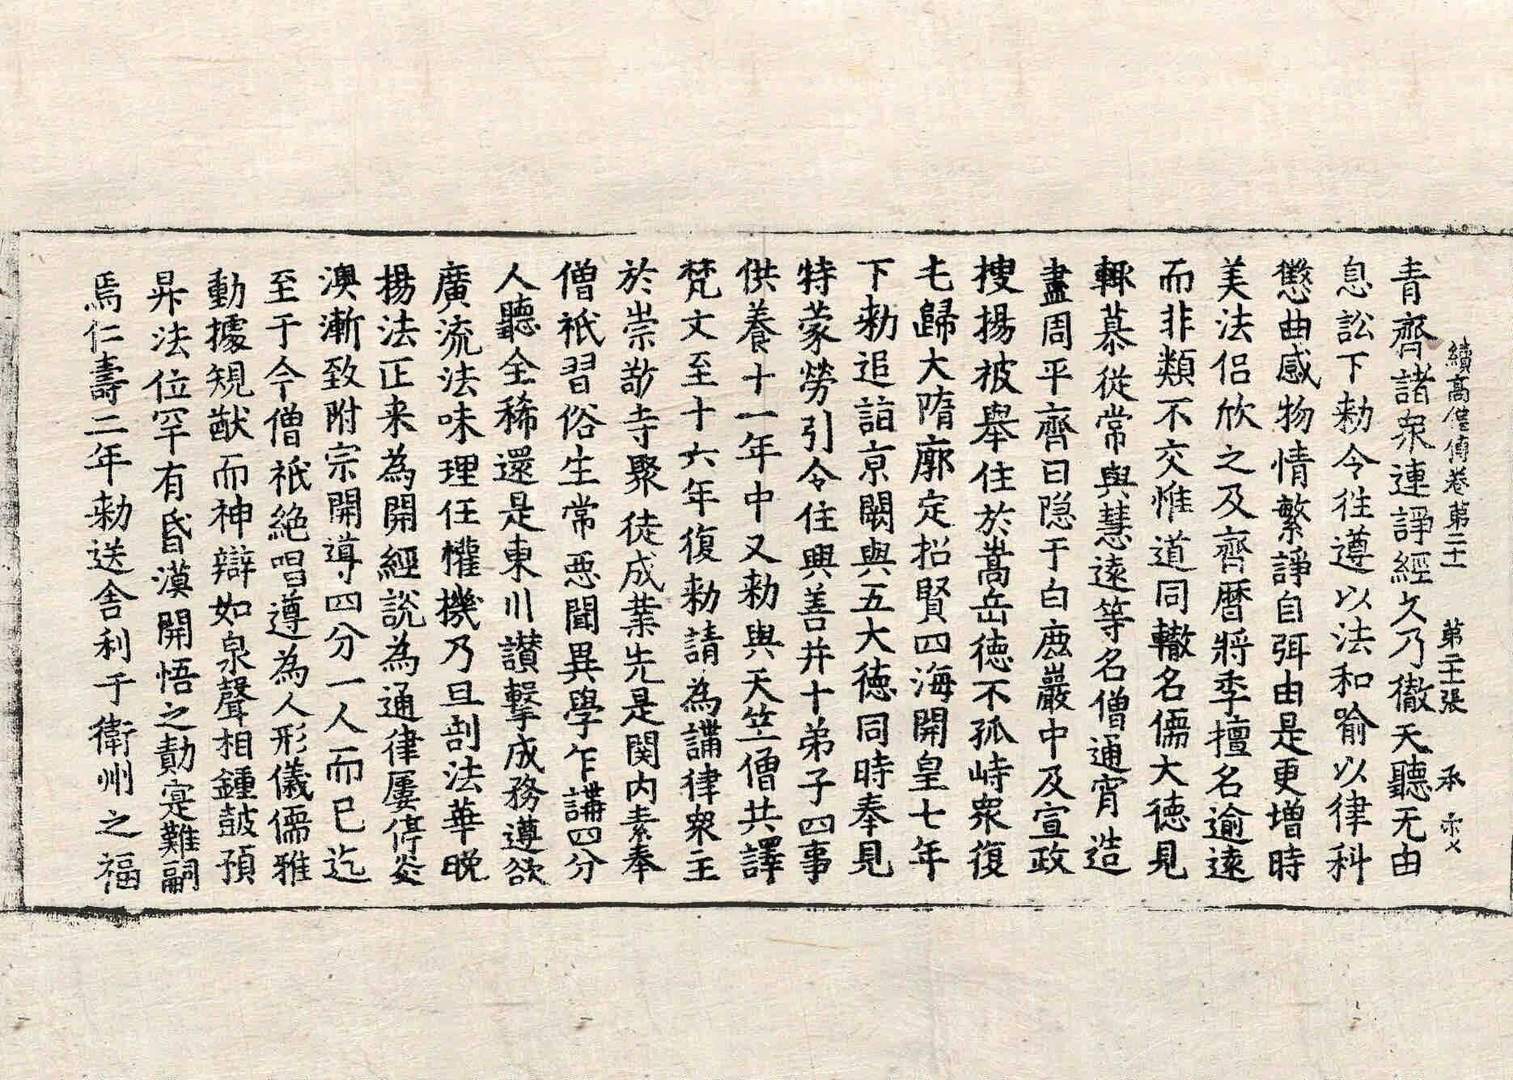 續高僧傳卷第二十一 第二十張 承
青齊諸衆連諍經久乃徹天聽无由
息訟下勑令往遵以法和喻以律科
懲曲感物情繁諍自弭由是更增時
美法侶欣之及齊曆將季擅名逾遠
而非類不交惟道同轍名儒大德見
輒慕從常與慧遠等名僧通宵造
盡周平齊日隱于白鹿巖中及宣政
搜揚被舉住於嵩岳德不孤峙衆復
屯歸大隋廓定招賢四海開皇七年
下勑追詣京闕與五大德同時奉見
特蒙勞引令住興善并十弟子四事
供養十一年中又勑與天竺僧共譯
梵文至十六年復勑請為講律衆主
於崇敬寺聚徒成業先是関内素奉
僧祇習俗生常惡聞異學乍講四分
人聽全稀還是東川讃擊成務遵欲
廣流法味理任權機乃旦剖法華晚
揚法正来為開經說為通律屢停炎
澳漸致附宗開導四分一人而已迄
至于今僧祇絶唱遵為人形儀儒雅
動據規猷而神辯如泉聲相鍾鼓預
昇法位罕有昏漠開悟之勣寔難嗣
焉仁壽二年勑送舍利于衛州之福